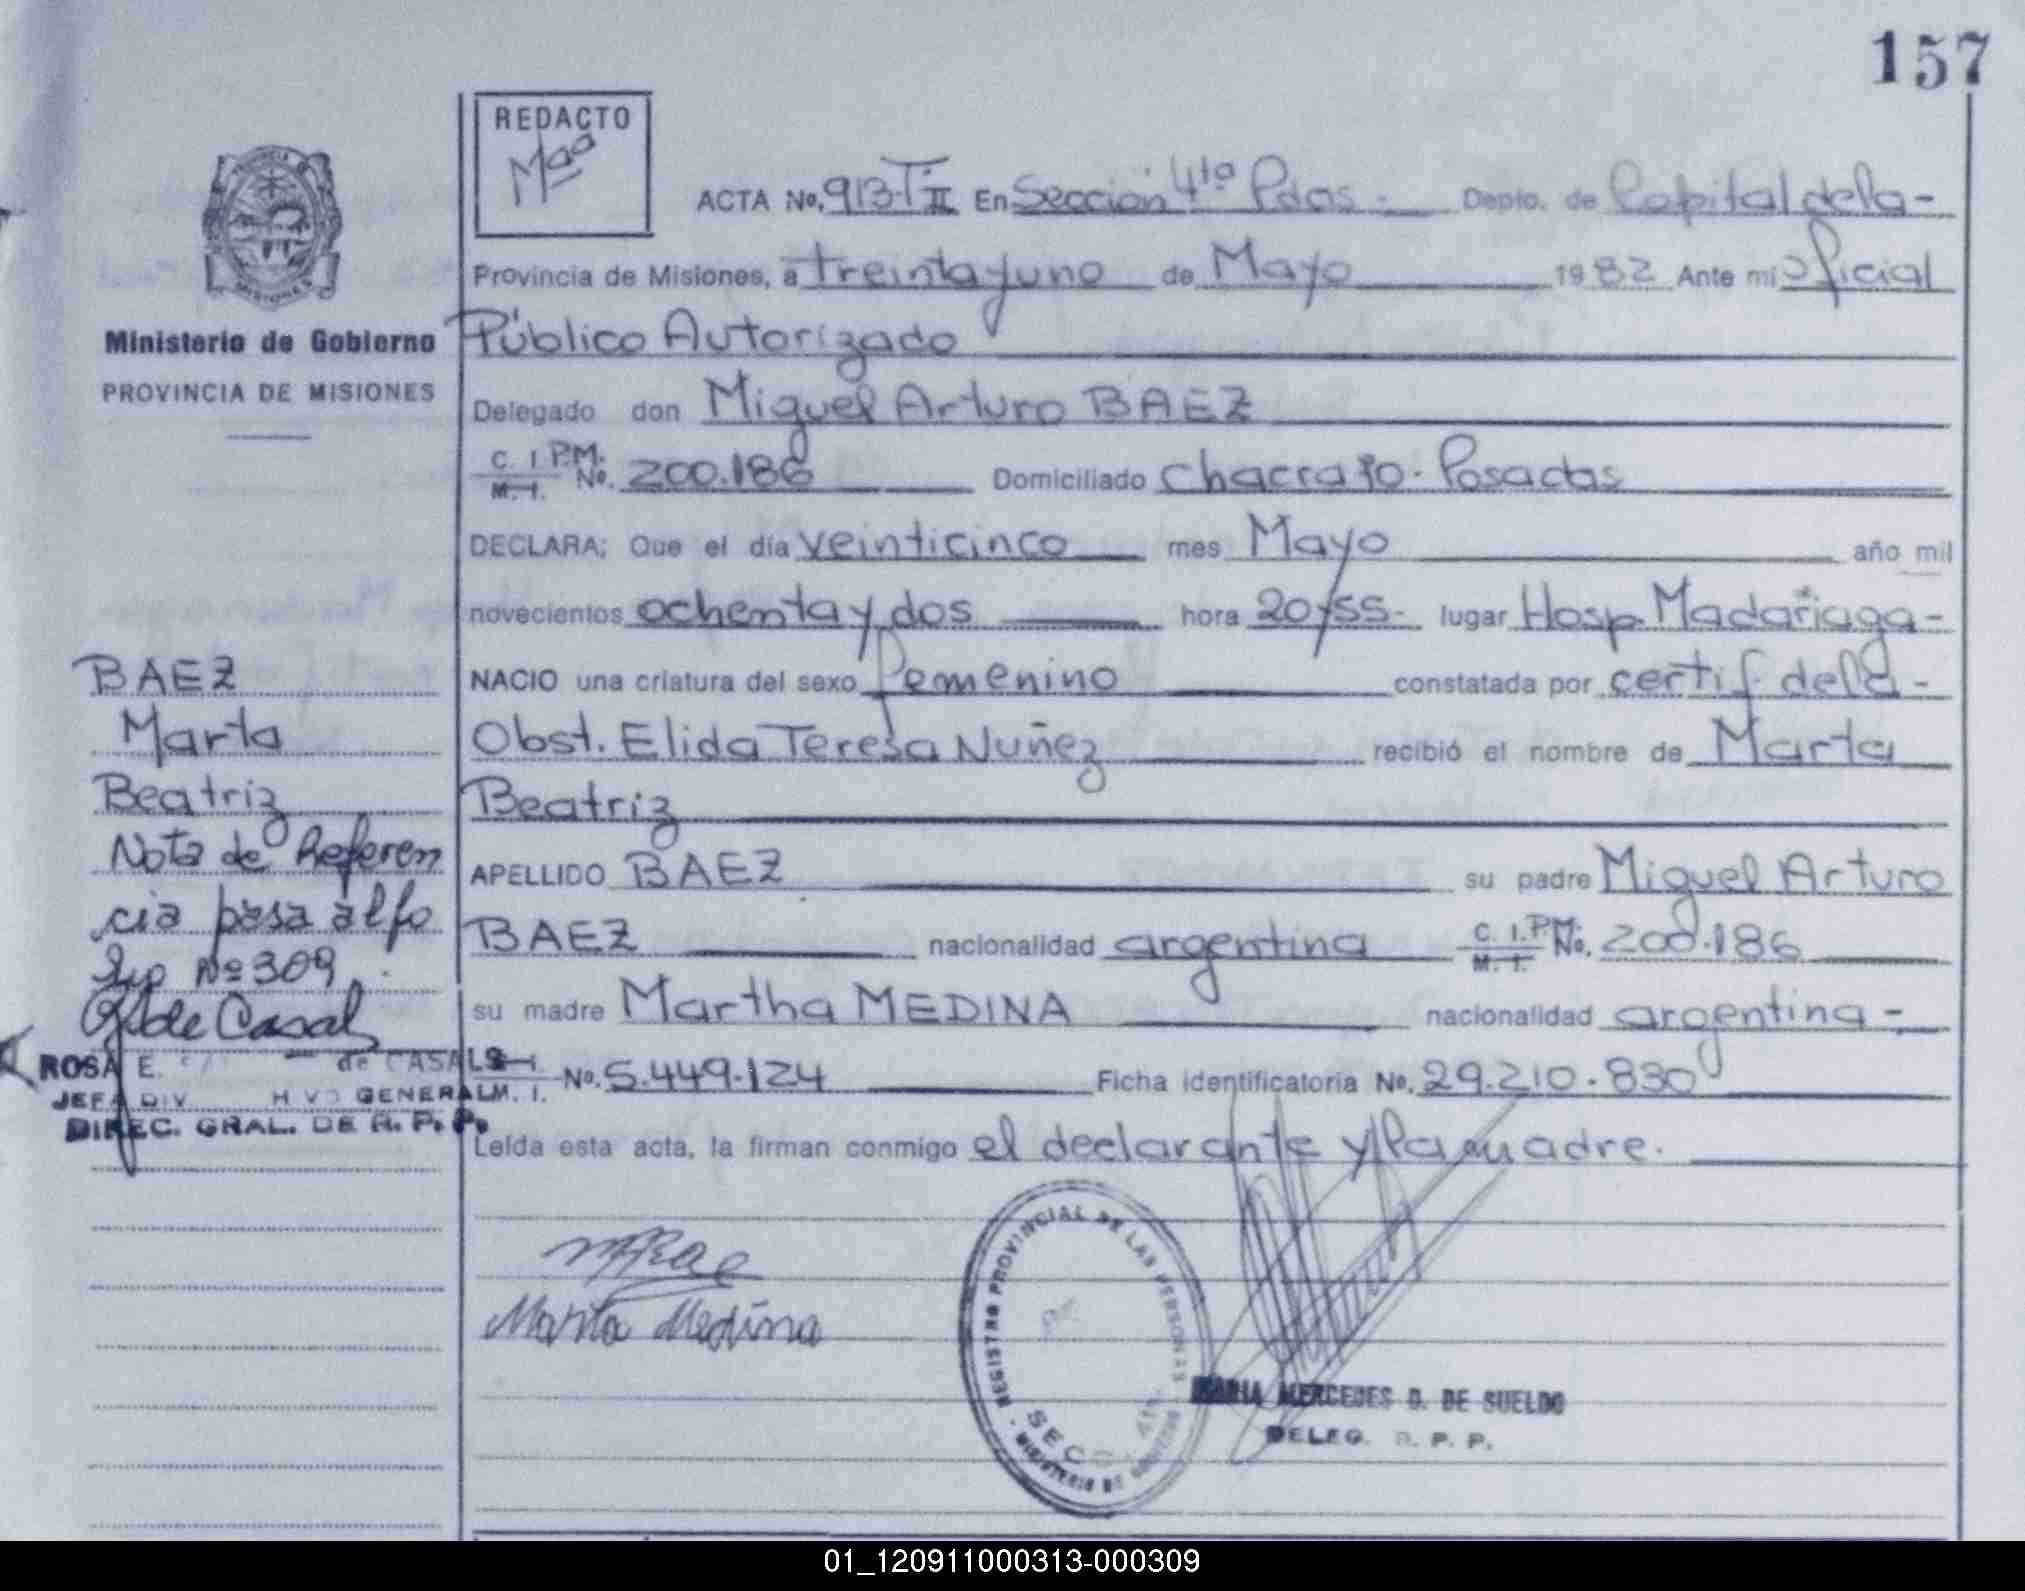 157
REDACTO
Mªª
ACTA No. 913-T-II En Sección 4ta Pdas.- Depto. de Capital de la-
Provincia de Misiones, a treinta y uno de Mayo 1982 Ante mi oficial
Ministerio de Gobierno
PROVINCIA DE MISIONES
Público Autorizado
Delegado don Miguel Arturo BAEZ
C. I. P.M. M. I. No. 200.186 Domiciliado Chacra Posadas
DECLARA; Que el día veinticinco mes Mayo año mil
novecientos ochenta y dos hora 20 y 55- lugar Hosp. Madariaga-
NACIO una criatura del sexo femenino constatada por certif de la-
Obst. Elida Teresa Nuñez recibió el nombre de Marta
Beatriz
APELLIDO BAEZ su padre Miguel Arturo
BAEZ nacionalidad argentina C. I. P.M. M. I. No. 200.186
su madre Martha MEDINA nacionalidad argentina-
M. I. No. 5.449.124 Ficha identificatoria No. 29.210.830
Leída esta acta, la firman conmigo el declarante y la madre.
BAEZ
Marta
Beatriz
Nota de Referen
cia pasa al fo
lio Nº 309
de Casals
ROSA E. de CASALS
JEFA DIV. GENERAL
DIREC. GRAL. DE R. P. P.
Marta Medina
REGISTRO PROVINCIAL DE LAS PERSONAS
MINISTERIO DE GOBIERNO
SECC. 4ta
MARIA MERCEDES D. DE SUELDO
DELEG. R. P. P.
01_120911000313-000309